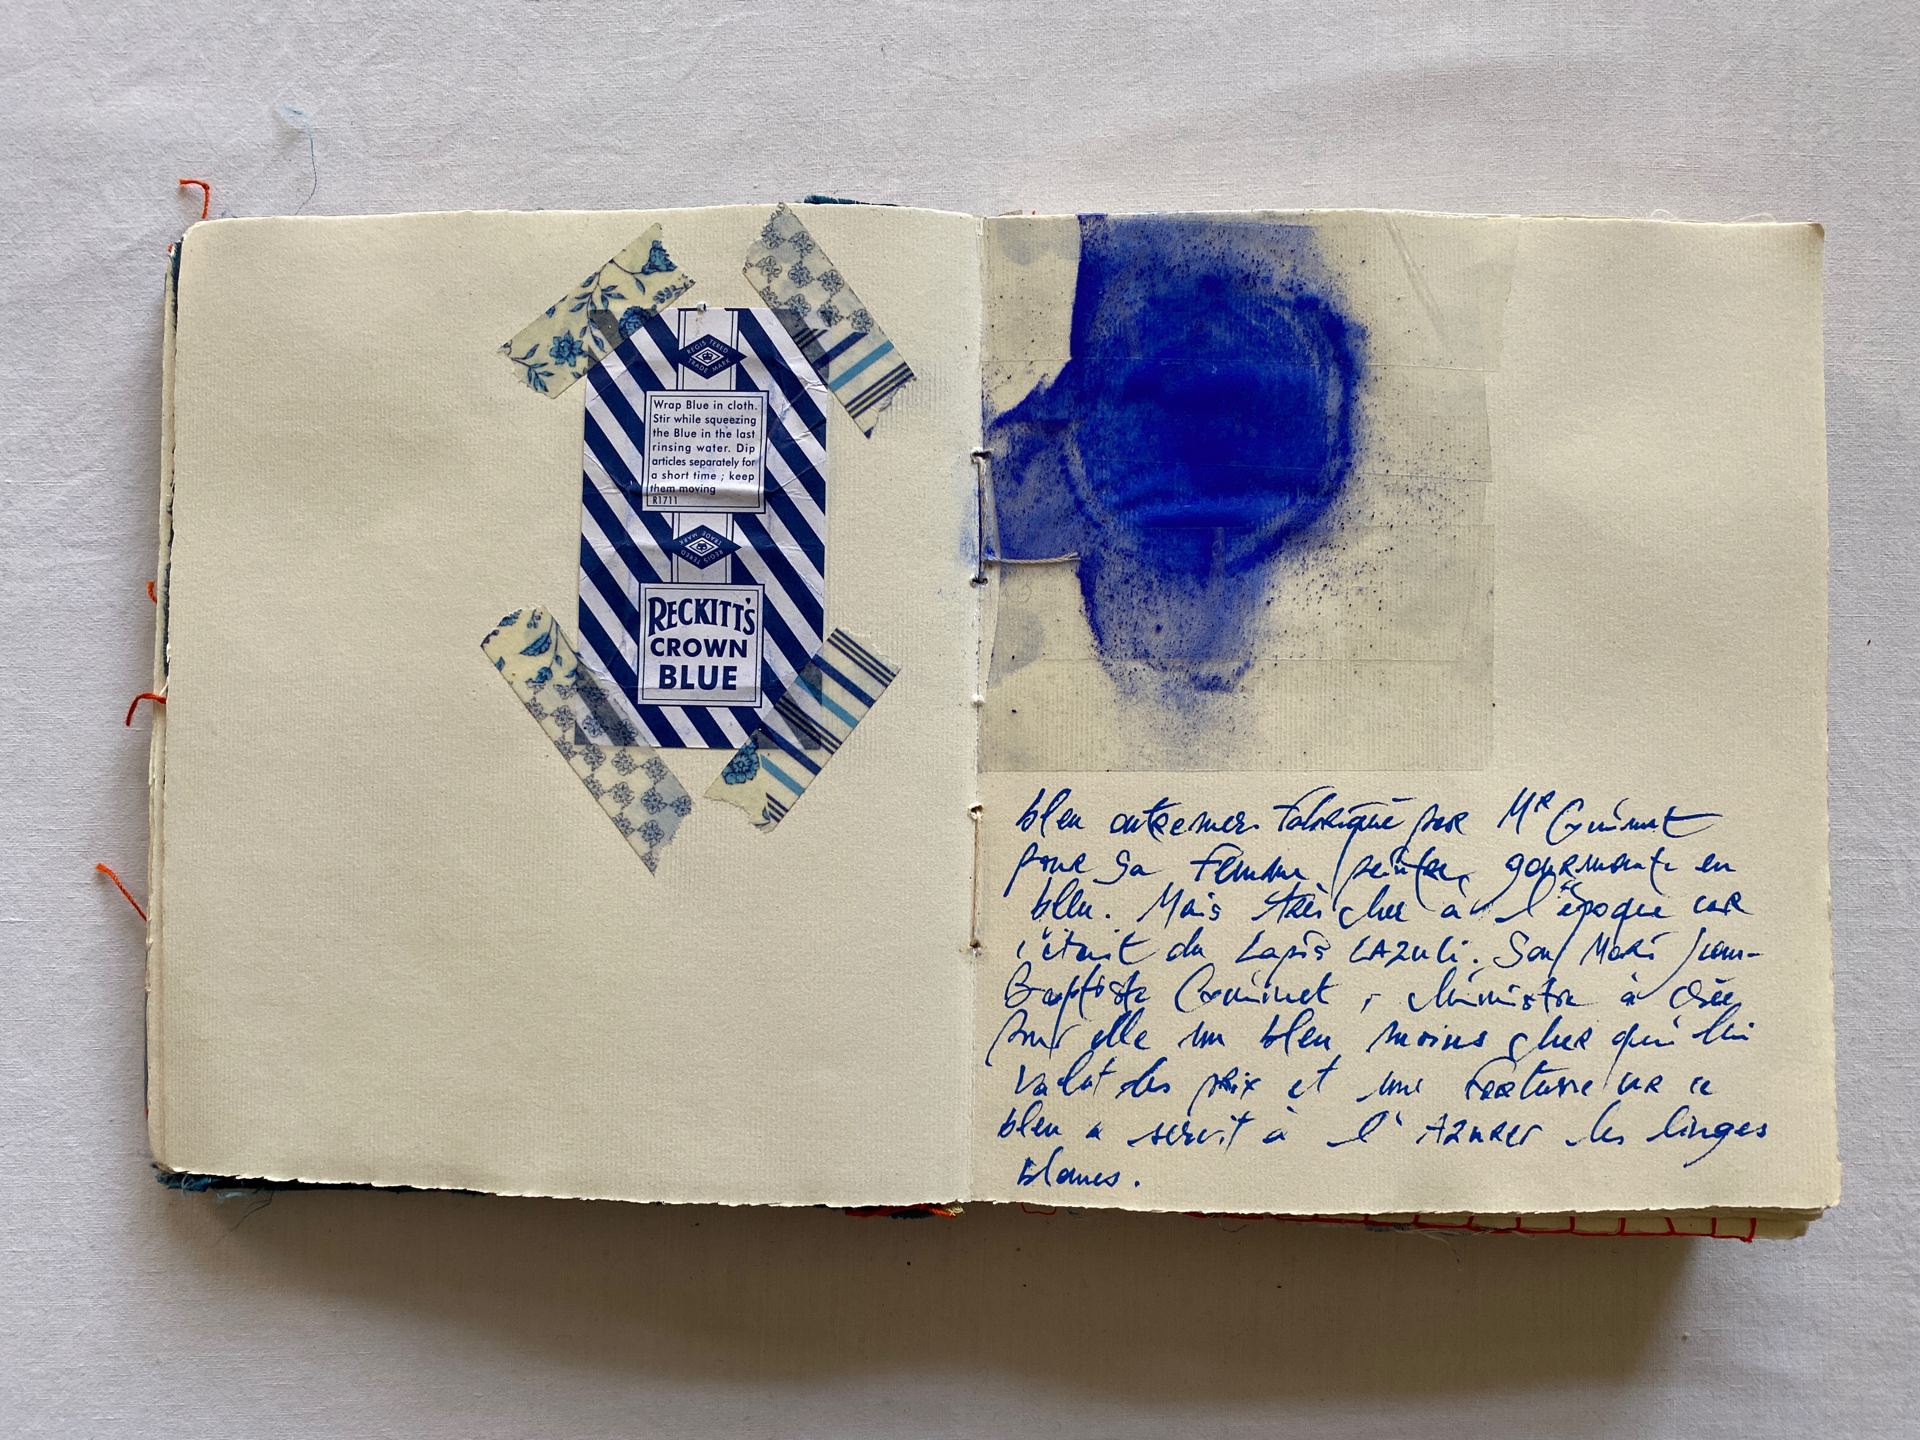 REGISTERED
TRADE MARK
Wrap Blue in cloth.
Stir while squeezing
the Blue in the last
rinsing water. Dip
articles separately for
a short time ; keep
them moving
R1711
REGISTERED
TRADE MARK
RECKITT'S
CROWN
BLUE
bleu outremer Fabriqué par MR Guimet
pour Sa Femme peintre, gourmande en
bleu. Mais très cher à l'époque car
c'était du Lapis LAZULI. Son Mari Jean-
Baptiste Guimet, chimiste à créé
pour elle un bleu moins cher qui lui
valut des prix et une Fortune car ce
bleu a servit à l'AZURER les linges
blancs.